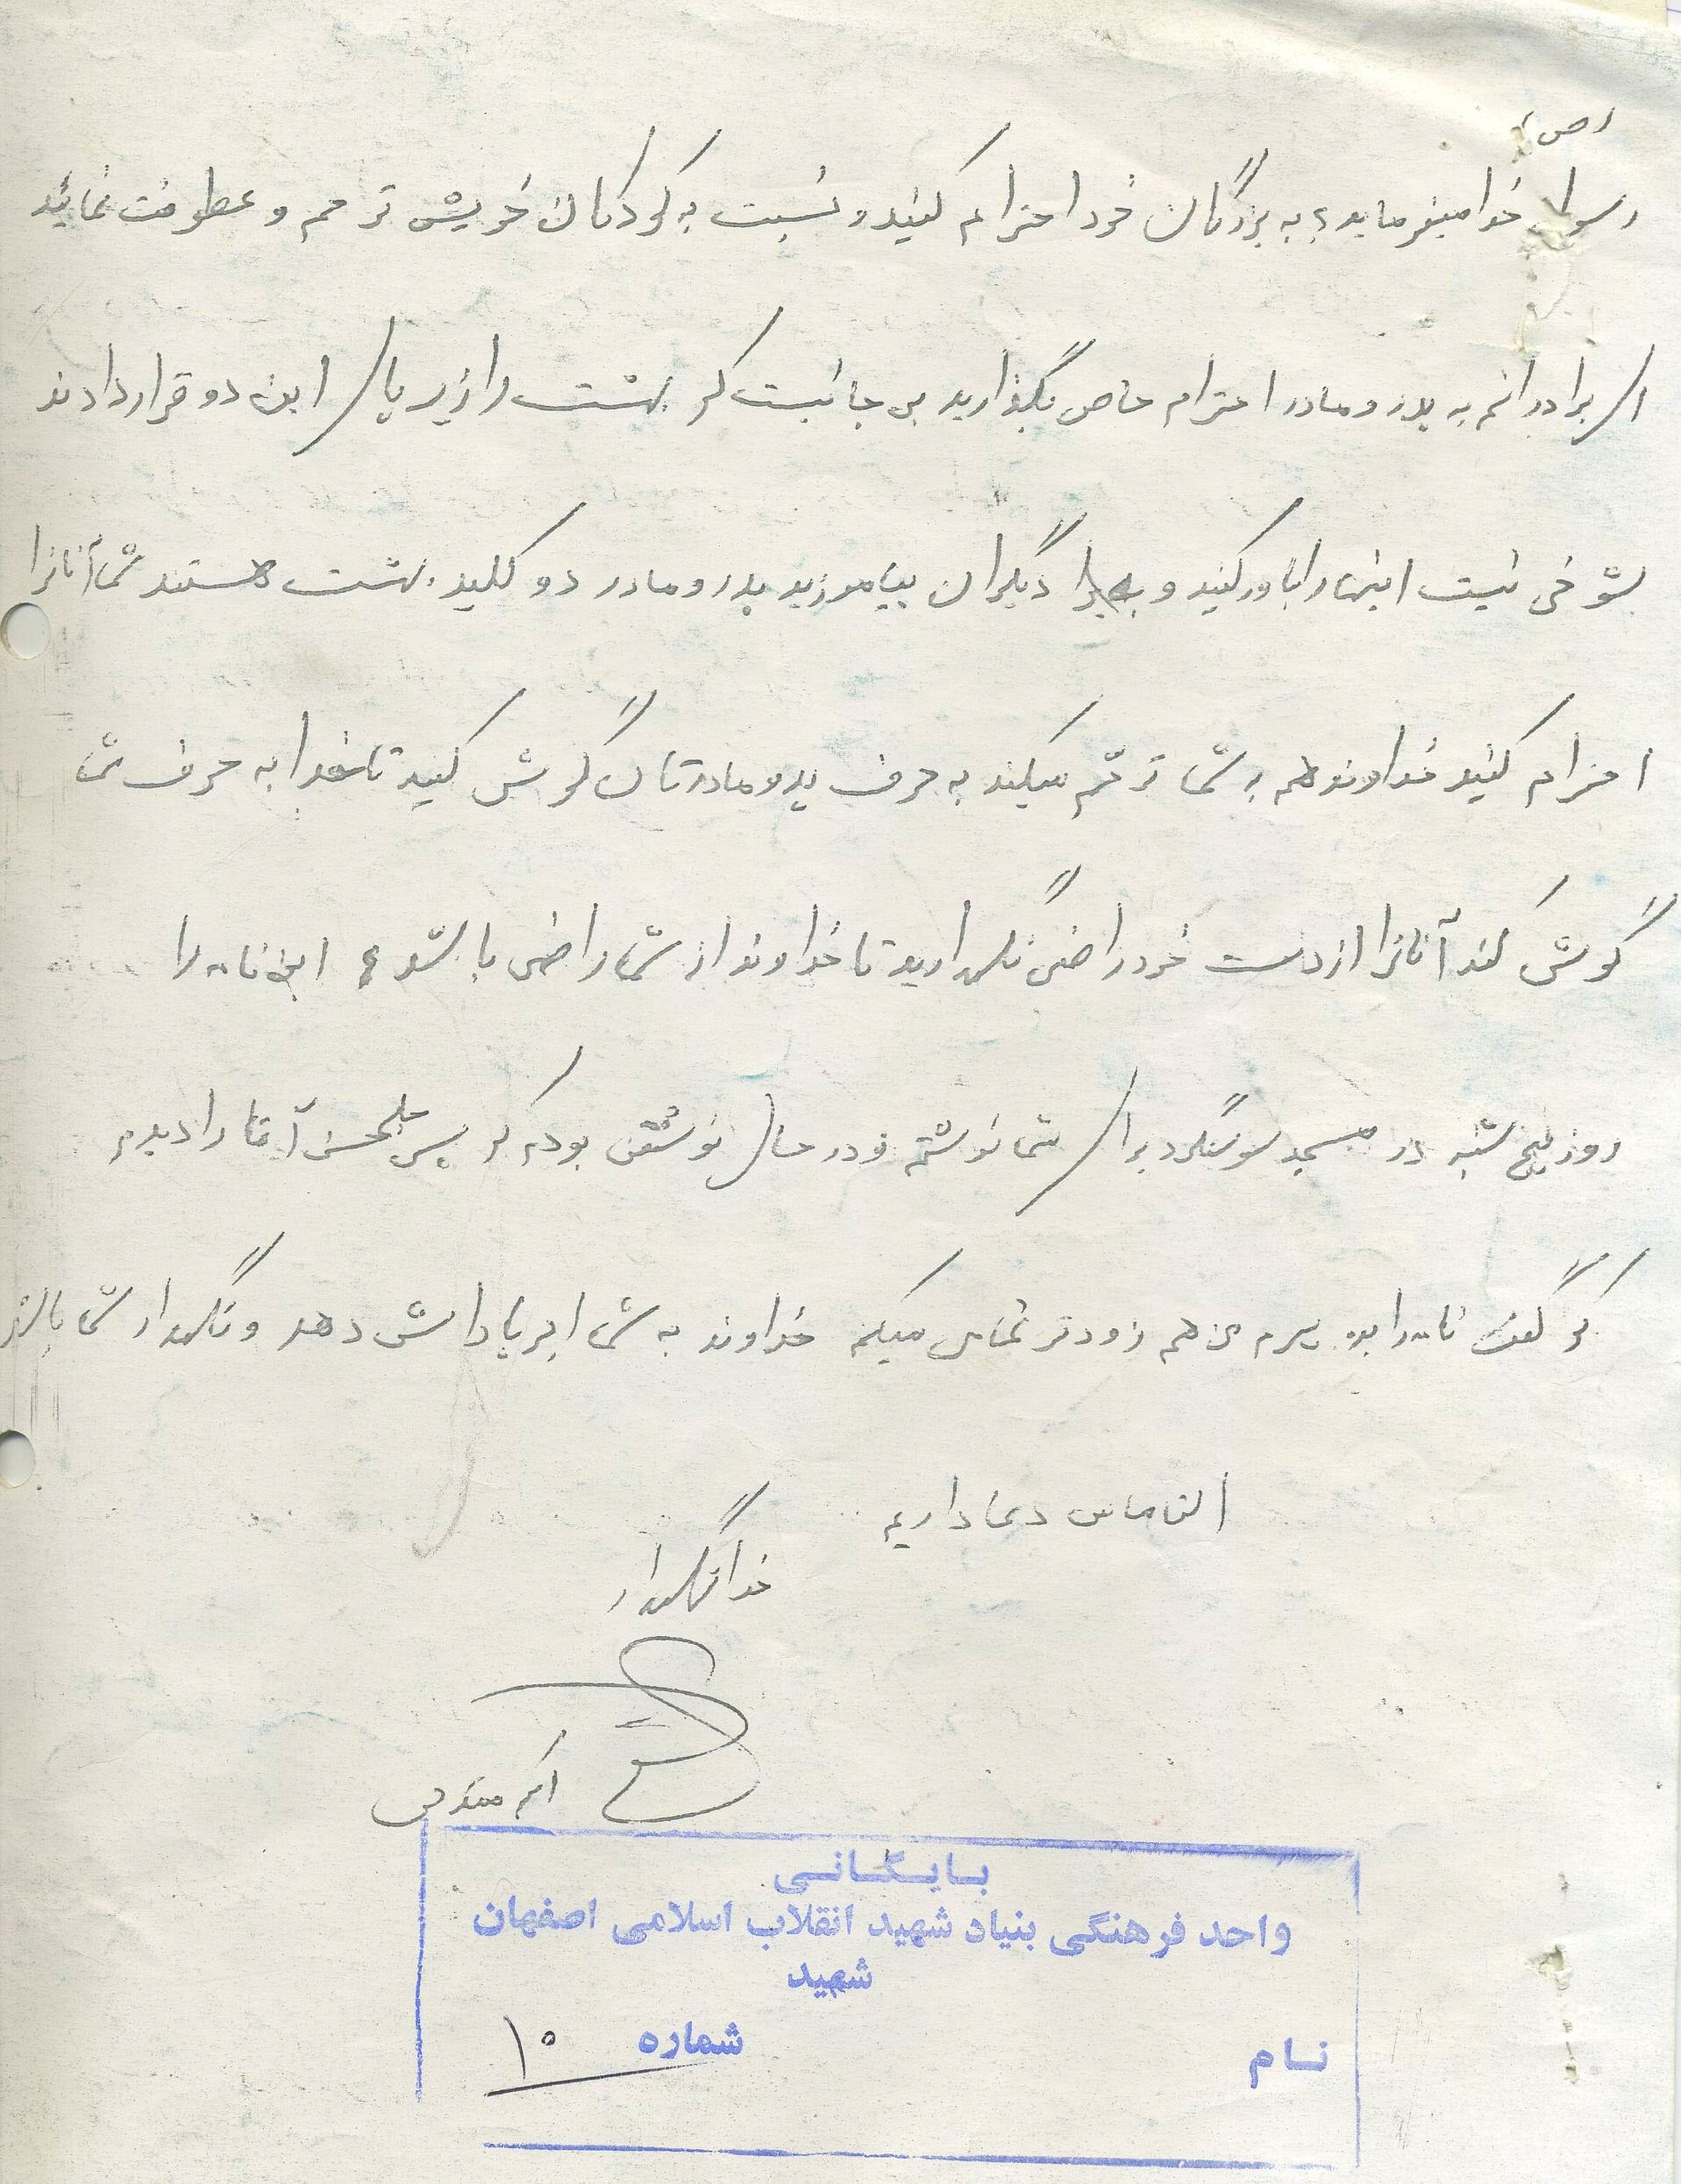 (ص)
رسول خدا میفرماید؛ به بزرگان خود احترام کنید و نسبت به کودکان خویش ترحم و عطوفت نمائید
ای برادرانم به پدر و مادر احترام خاص بگذارید بی جا نیست که بهشت را زیر پای این دو قرار دادند
شوخی نیست اینها را باور کنید و به دیگران بیاموزید پدر و مادر دو کلید بهشت هستند شما آنانرا
احترام کنید خداوند هم به شما ترحم میکند به حرف پدر و مادرتان گوش کنید تا خدا به حرف شما
گوش کند آنانرا از دست خود راضی نگهدارید تا خداوند از شما راضی باشد این نامه را
روز پنج شنبه در مسجد سوسنگرد برای شما نوشتم و در حال نوشتن بودم که پسر آقا را دیدم
که گفت نامه را بده ببرم من هم زودتر تمامش میکنم خداوند به شما اجر پاداش دهد و نگهدار شما باشد
التماس دعا داریم
خدانگهدار
بایگانی
واحد فرهنگی بنیاد شهید انقلاب اسلامی اصفهان
شهید
نام شماره ۱۰